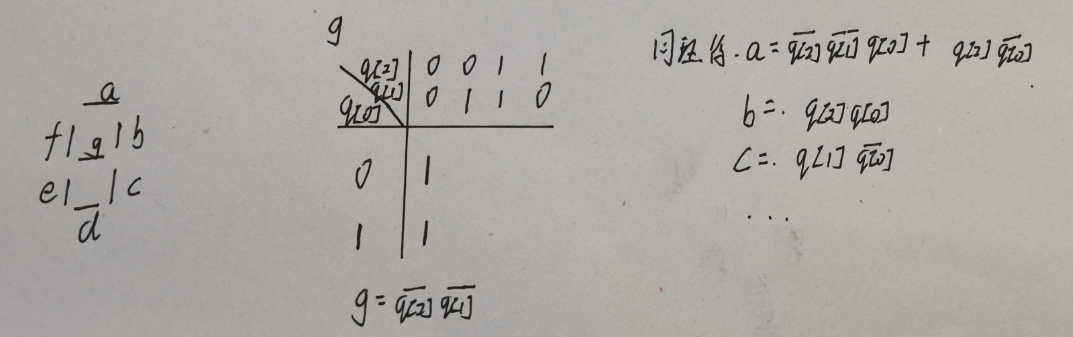 a
f|g|b
e|_|c
d
g
q[2] 0 0 1 1
q[1] 0 1 1 0
q[0]
0 1
1 1
g = \overline{q[2]} \overline{q[1]}
同理得. a = \overline{q[2]} \overline{q[1]} q[0] + q[2] \overline{q[0]}
b =. q[2] q[0]
c =. q[1] \overline{q[0]}
...